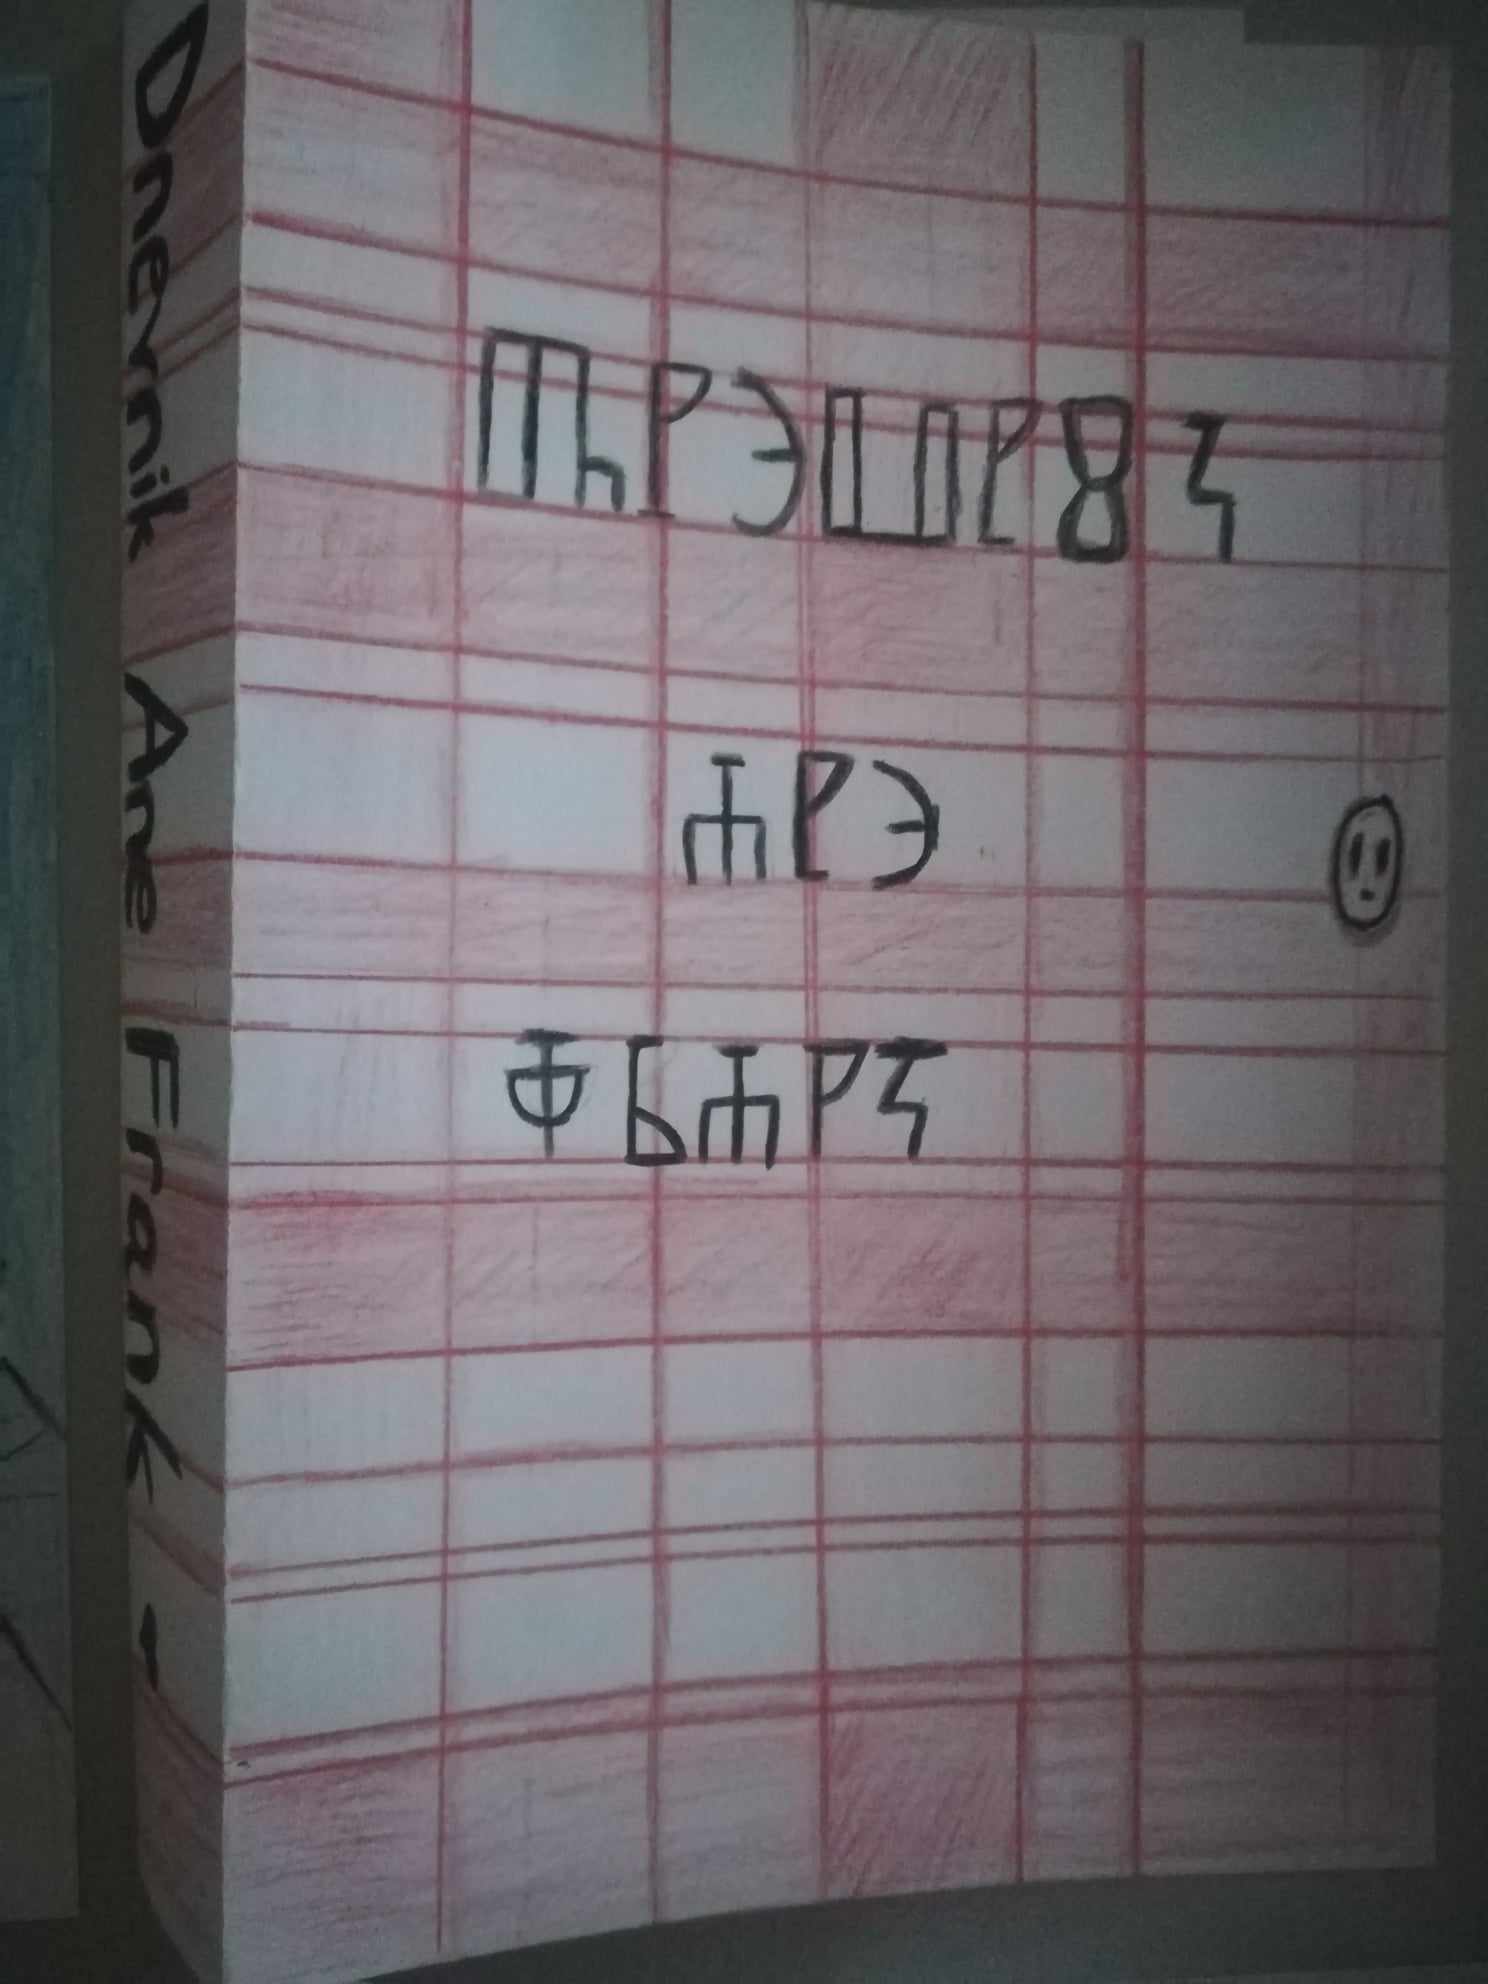 Dnevnik Ane Frank
ⰄⱀⰅⰂⰐⰋⰍ
ⰀⰐⰅ
ⰗⰓⰀⰐⰍ